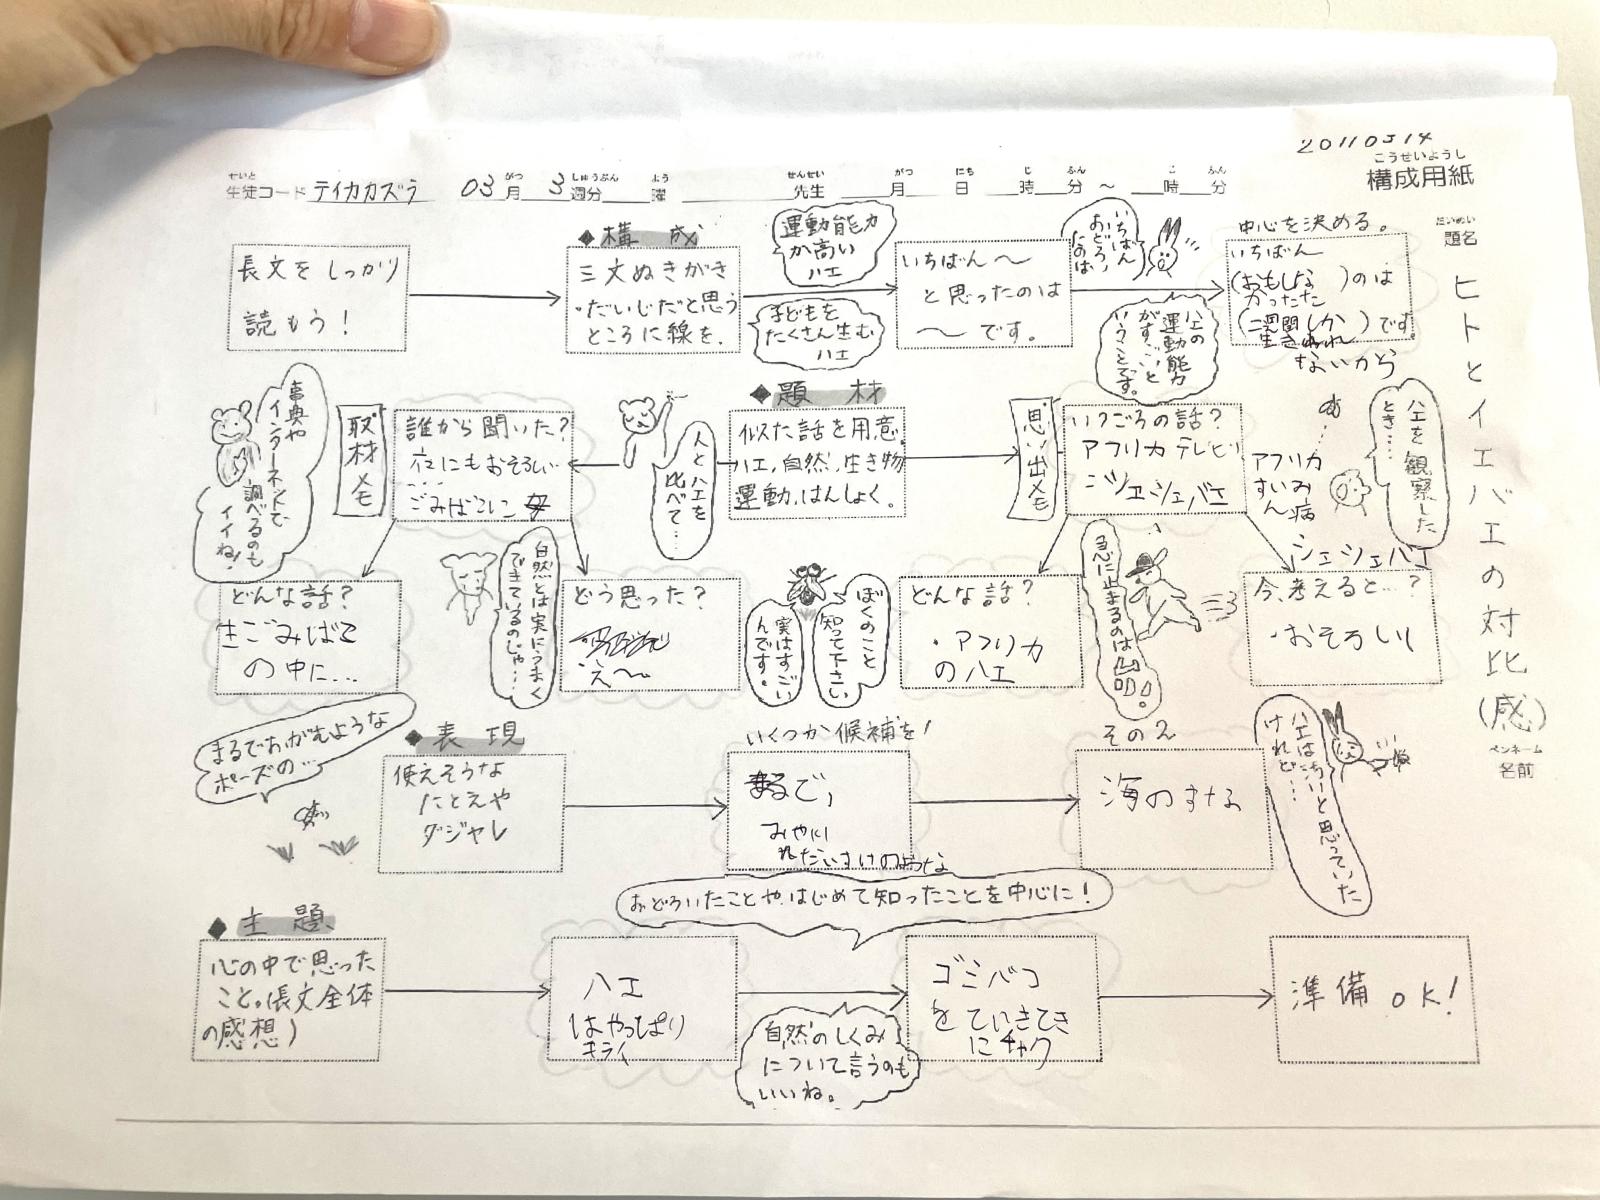 20110314
こうせいようし
構成用紙
せいと がつ しゅうぶん よう せんせい がつ にち じ ふん こ ふん
生徒コード テイカカズラ 03月 3週分 曜 先生 月 日 時 分 ～ 時 分
だいめい
題名
ヒトとイエバエの対比(感)
ペンネーム
名前
長文をしっかり
読もう!
◆構成
三文ぬきがき
・だいじだと思う
ところに線を.
運動能力
が高い
ハエ
子どもを
たくさん生む
ハエ
いちばん～
と思ったのは
～です。
いちばん
おどろい
たのは、
ハエの
運動能力
がすごいと
いうことです。
中心を決める。
いちばん
(おもしろ)のは
かったた
(二週間しか)です。
生きられ
ないから
事典や
インターネットで
調べるのも
イイね!
取材メモ
誰から聞いた?
夜にもおそろしい…
ごみばこに
人とハエを
比べて…
◆題材
似た話を用意.
ハエ,自然,生き物
運動,はんしょく。
思い出メモ
いつごろの話?
アフリカ テレビ
ハエを観察した
とき…
アフリカ
すいみ
ん病
どんな話?
生ごみばこ
の中に…
自然とは実にうまく
できているのじゃ…
どう思った?
え～
ぼくのこと
知って下さい
実はすごい
んです。
どんな話?
・アフリカ
のハエ
急に止まるのは
今、考えると…?
・おそろしい
まるでおがむような
ポーズの…
◆表現
使えそうな
たとえや
ダジャレ
いくつか候補を!
まるで,
その2
海のすな
ハエは汚いと思っていた
けれど…
おどろいたことや、はじめて知ったことを中心に!
◆主題
心の中で思った
こと。(長文全体
の感想)
ハエ
はやっぱり
キライ
自然のしくみ
について言うのも
いいね。
ゴミバコ
を
にチャク
準備OK!